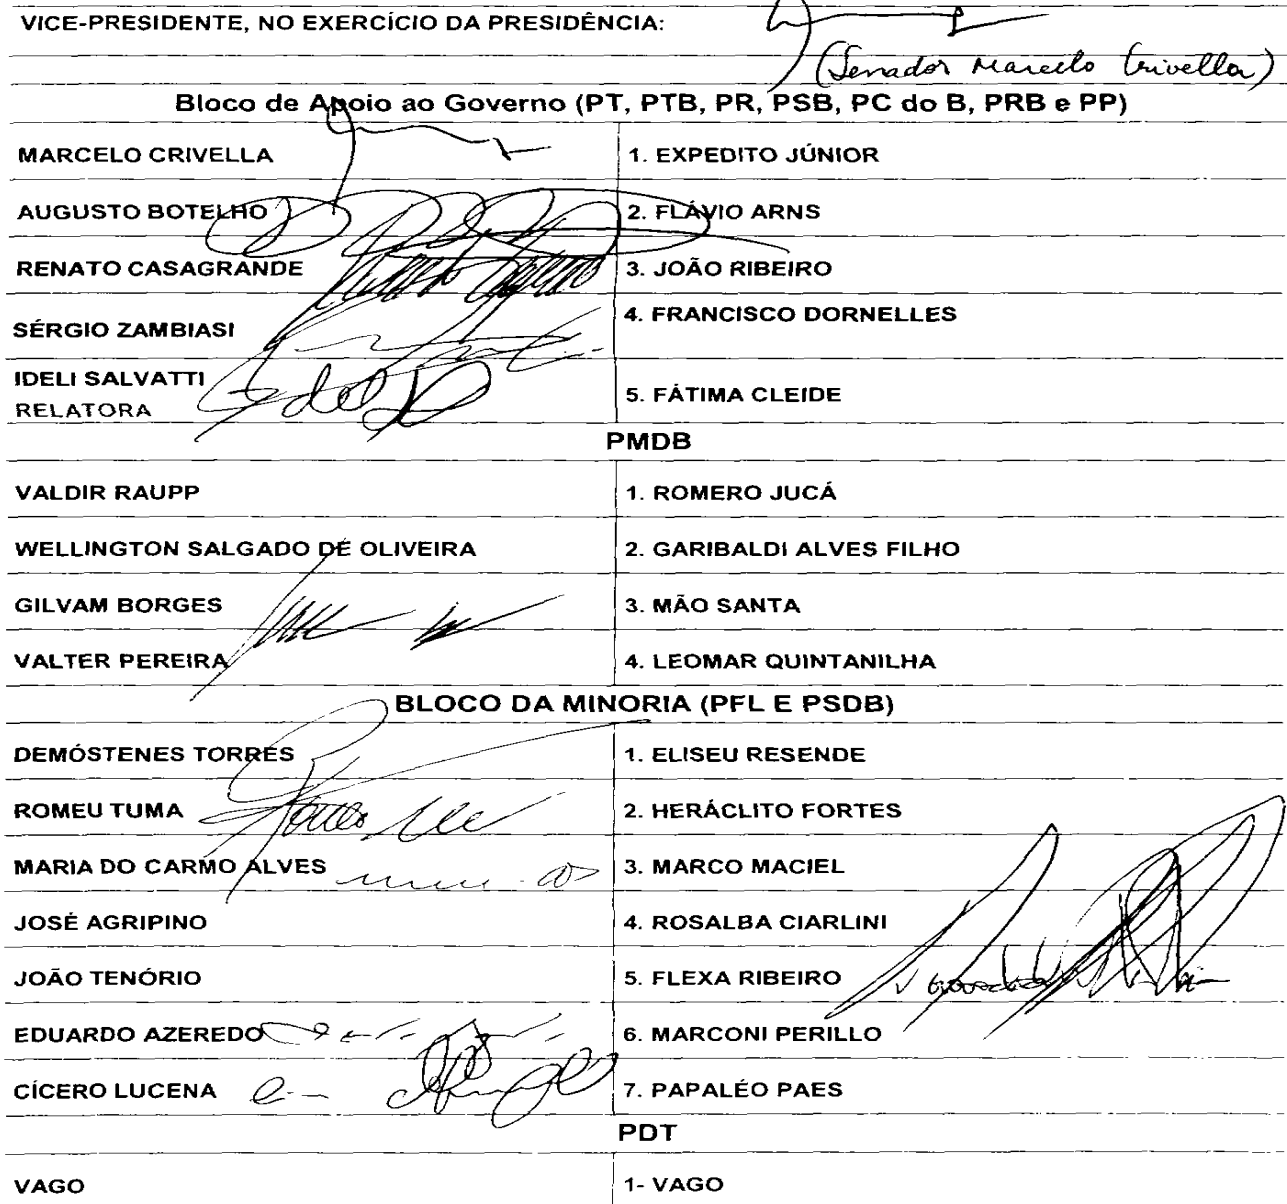 VICE-PRESIDENTE, NO EXERCÍCIO DA PRESIDÊNCIA:
(Senador Marcelo Crivella)
Bloco de Apoio ao Governo (PT, PTB, PR, PSB, PC do B, PRB e PP)
MARCELO CRIVELLA 1. EXPEDITO JÚNIOR
AUGUSTO BOTELHO 2. FLÁVIO ARNS
RENATO CASAGRANDE 3. JOÃO RIBEIRO
SÉRGIO ZAMBIASI 4. FRANCISCO DORNELLES
IDELI SALVATTI
RELATORA 5. FÁTIMA CLEIDE
PMDB
VALDIR RAUPP 1. ROMERO JUCÁ
WELLINGTON SALGADO DE OLIVEIRA 2. GARIBALDI ALVES FILHO
GILVAM BORGES 3. MÃO SANTA
VALTER PEREIRA 4. LEOMAR QUINTANILHA
BLOCO DA MINORIA (PFL E PSDB)
DEMÓSTENES TORRES 1. ELISEU RESENDE
ROMEU TUMA 2. HERÁCLITO FORTES
MARIA DO CARMO ALVES 3. MARCO MACIEL
JOSÉ AGRIPINO 4. ROSALBA CIARLINI
JOÃO TENÓRIO 5. FLEXA RIBEIRO
EDUARDO AZEREDO 6. MARCONI PERILLO
CÍCERO LUCENA 7. PAPALÉO PAES
PDT
VAGO 1- VAGO